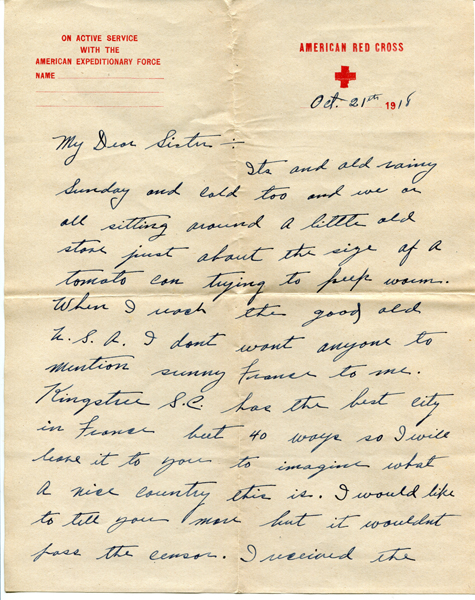 ON ACTIVE SERVICE
WITH THE
AMERICAN EXPEDITIONARY FORCE
NAME
AMERICAN RED CROSS
Oct. 21th 1918
My Dear Sister :-
Its and old rainy
Sunday and cold too and we or
all sitting around a little old
stove just about the size of a
tomato can trying to keep warm.
When I reach the good old
U.S.A. I dont want anyone to
mention sunny France to me.
Kingstree S.C. has the best city
in France beet 40 ways so I will
leave it to you to imagine what
a nice country this is. I would like
to tell you more but it wouldnt
pass the censor. I received the